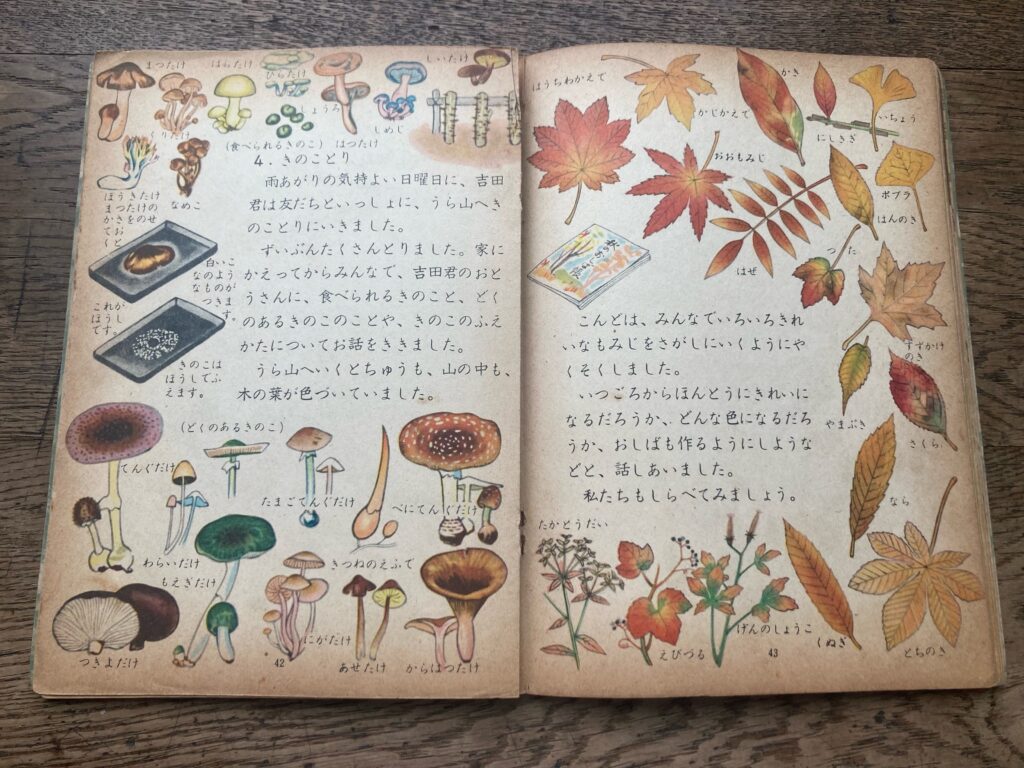 まつたけ
はらたけ
ひらたけ
しいたけ
しょうろ
くりたけ
しめじ
(食べられるきのこ)
はつたけ
4. きのことり
雨あがりの気持よい日曜日に、吉田
君は友だちといっしょに、うら山へき
のことりにいきました。
ずいぶんたくさんとりました。家に
かえってからみんなで、吉田君のおと
うさんに、食べられるきのこと、どく
のあるきのこのことや、きのこのふえ
かたについてお話をききました。
うら山へいくとちゅうも、山の中も、
木の葉が色づいていました。
ほうきたけ
なめこ
まつたけの
かさをのせ
てお
くと
白いこ
なのよう
なものが
つきま
す。
これが
ほうし
です。
きのこは
ほうしでふ
えます。
(どくのあるきのこ)
てんぐだけ
たまごてんぐだけ
べにてんぐだけ
わらいだけ
きつねのえふで
もえぎだけ
にがたけ
つきよだけ
あせたけ
からはつたけ
42
はうちわかえで
かじかえで
かき
にしきぎ
いちょう
おおもみじ
ポプラ
はんのき
はぜ
つた
すずかけ
のき
こんどは、みんなでいろいろきれ
いなもみじをさがしにいくようにや
くそくしました。
いつごろからほんとうにきれいに
なるだろうか、どんな色になるだろ
うか、おしばも作るようにしような
どと、話しあいました。
私たちもしらべてみましょう。
やまぶき
さくら
なら
たかとうだい
げんのしょうこ
えびづる
くぬぎ
とちのき
43